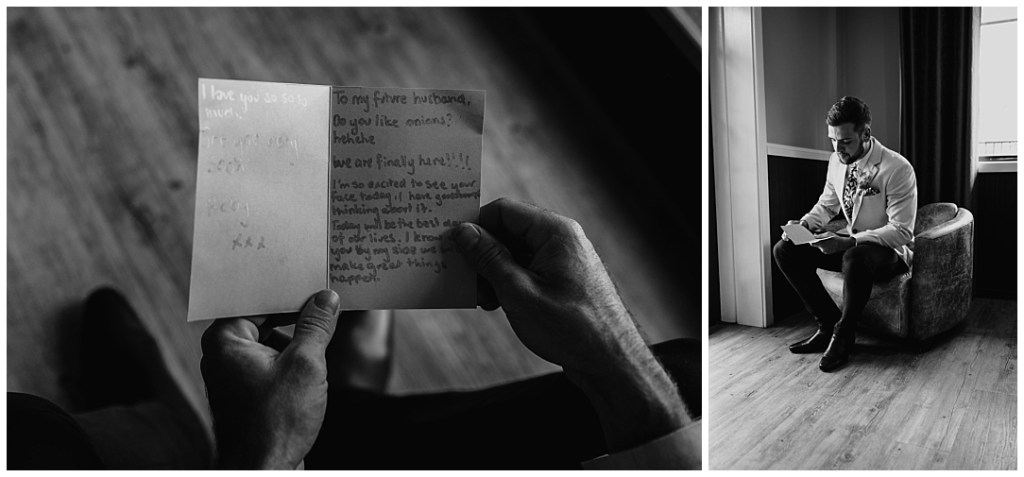 I love you so so so
much.
xxx
To my future husband,
Do you like onions?
hehehe
We are finally here!!!!
I'm so excited to see your
face today, I have goosebumps
thinking about it.
Today will be the best day
of our lives. I know
you by my side we
make great things
happen.